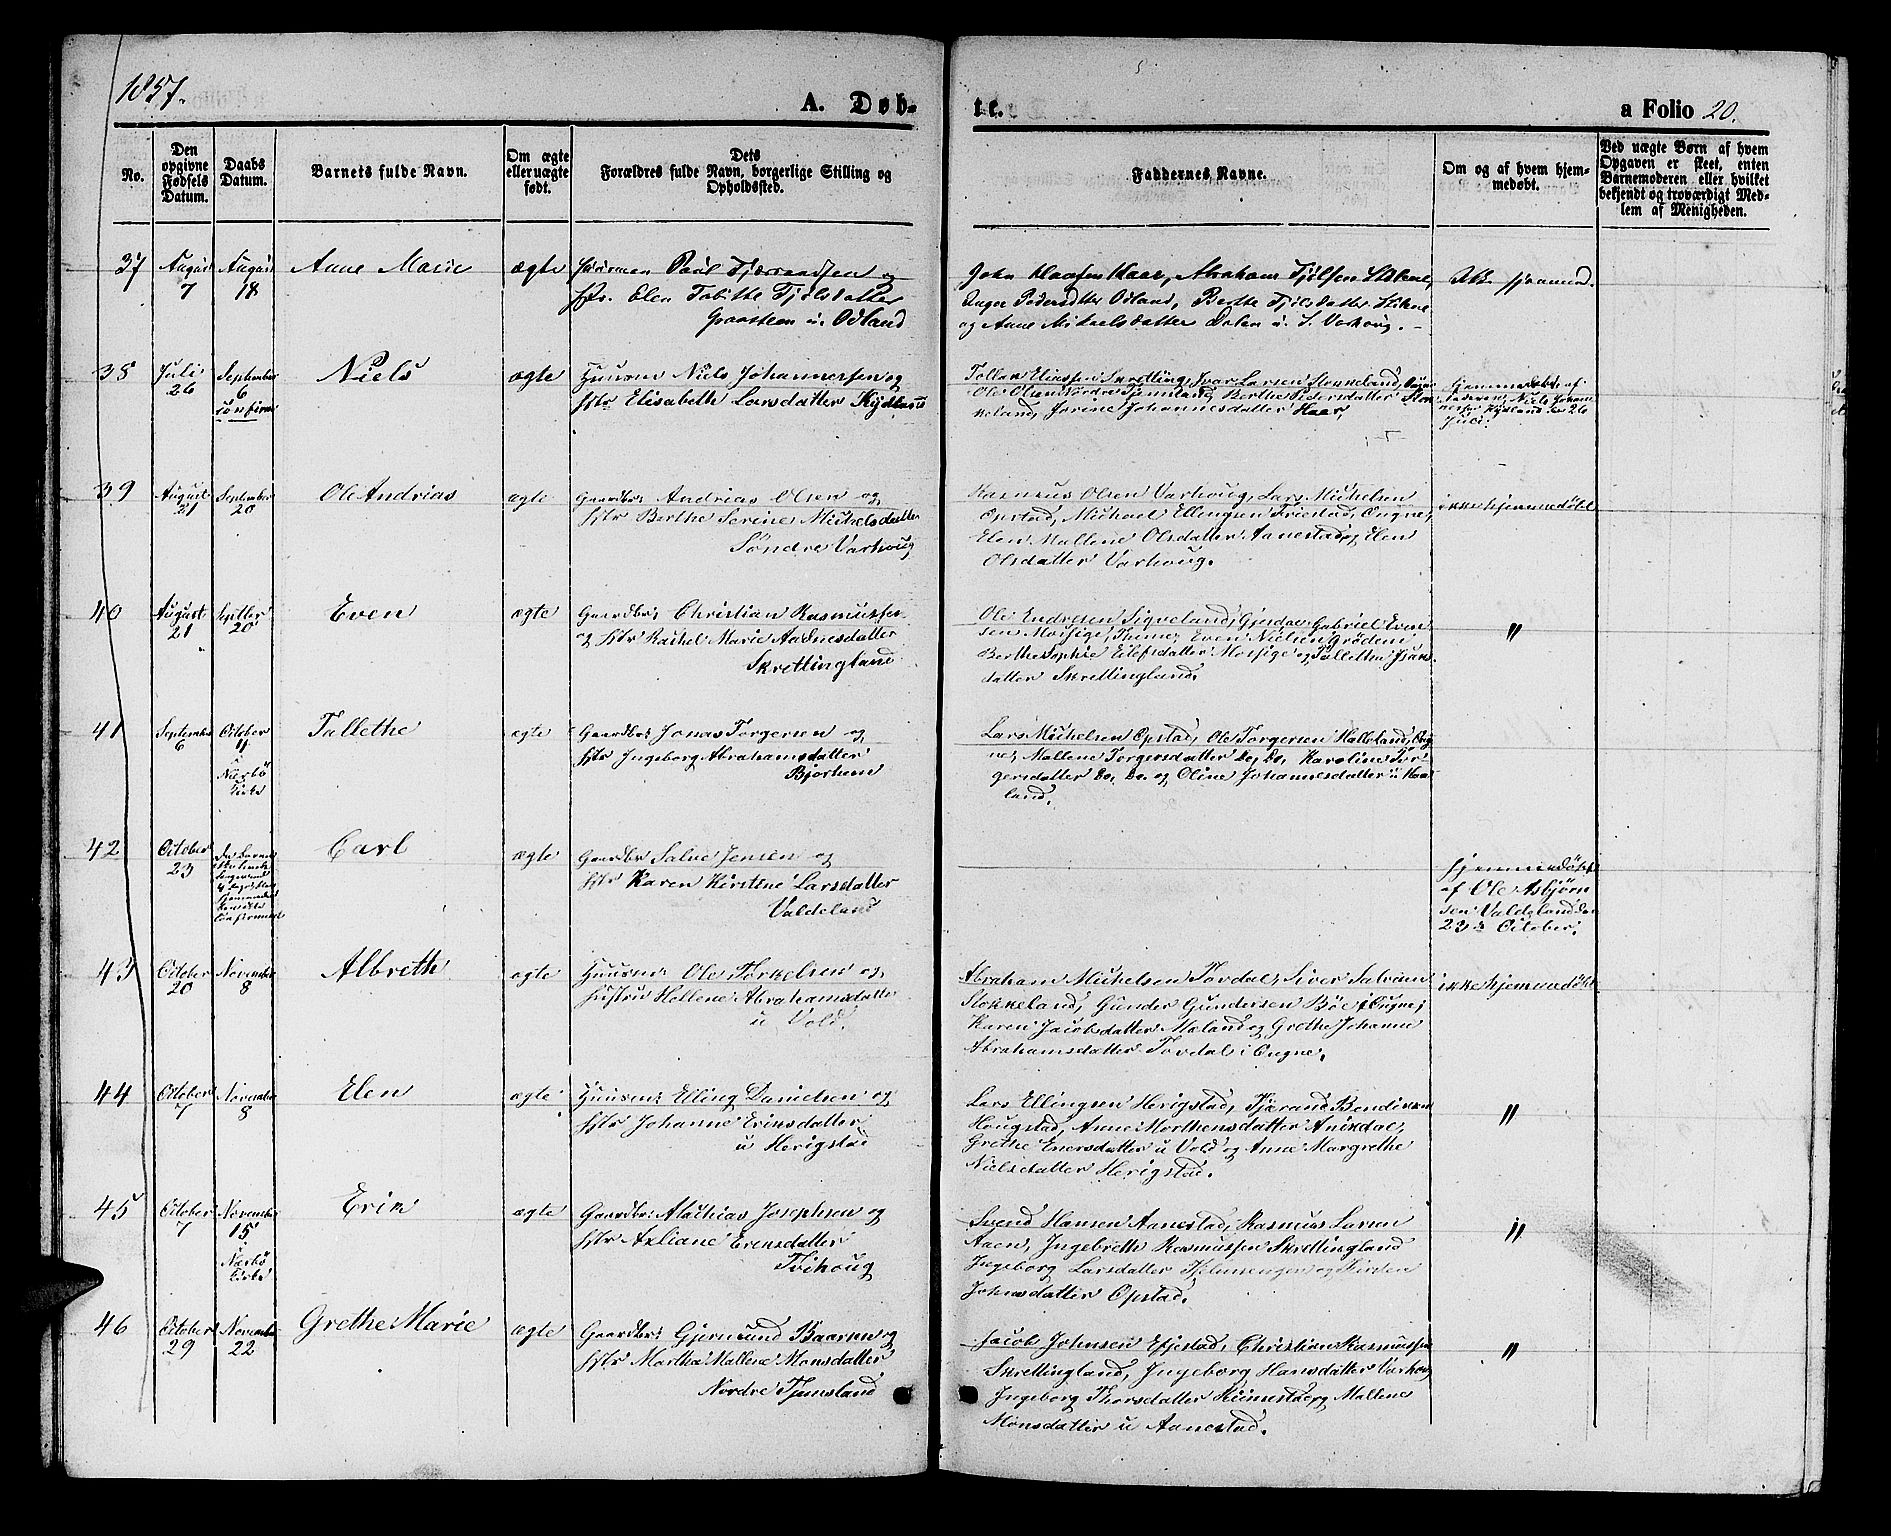 1857.
A. Døb-
te.
a Folio 20.
No.
Den opgivne Fødsels Datum.
Daabs Datum.
Barnets fulde Navn.
Om ægte eller uægte født.
Dets Forældres fulde Navn, borgerlige Stilling og Opholdssted.
Faddernes Navne.
Om og af hvem hjem-
medøbt.
Ved uægte Børn af hvem
Opgaven er skeet, enten
Barnemoderen eller hvilket
bekjendt og troværdigt Med-
lem af Menigheden.
37 August 7 August 18 Anne Marie ægte Paul Tjerandsen og
Hstr. Elen Tobitte Tjølsdatter
Graasteen u. Odland
John Haar, Abraham Tjølsen
Inger Pedersdtter Odland, Berthe Tjølsdatter
og Anne Mikaelsdatter Dalen u. S. Varhoug.
38 Juli 26 September 6 confirm Niels ægte Huusm Niels Johannessen og
Hstr Elisabeth Larsdatter Kydland
Tollak Eliassen Skretting, Ivar Larsen Stokkeland,
Ole Olsen Nordre Tjemsland, Berthe Pedersdatter Stok-
keland, Jorine Johannesdatter Haar,
hjemmedøbt af
Faderen, Niels Johan-
nessen Kydland den 26
Juli.
39 August 21 September 20 Ole Andrias ægte Gaardbr: Andrias Olsen og
Hstr Berthe Serine Michelsdatter
Søndre Varhoug
Rasmus Olsen Varhoug, Lars Michelsen
Opstad, Michael Ellingsen Friestad, Ougne,
Elen Mallene Olsdatter Aanestad og Elen
Olsdatter Varhoug.
ikke hjemmedøbt
40 August 21 Septber 20 Even ægte Gaardbr: Christian Rasmussen
og Hstr Rachel Marie Aadnesdatter
Skrettingland
Ole Endresen Sigveland, Gjesdal, Gabriel Even-
sen Motsige, Thime, Even Nielsen Grødem
Berthe Sophie Eilefsdatter Motsige og Tallethe Isaks-
datter Skrettingland.
"
41 September 6 October 11 i Nærbø Kirke Tallethe ægte Gaardbr: Jonas Torgersen og
Hstr Ingeborg Abrahamsdatter
Bjorhem
Lars Michelsen Opstad, Ole Torgersen Halleland, Oug-
ne, Mallene Torgersdatter Do, Do, Karoline Tor-
gersdatter Do, Do, og Oline Johannesdatter u Haa-
land.
42 October 23 Carl ægte Gaardbr Salve Jensen og
Hstr Karen Kirstine Larsdatter
Valdeland
hjemmedøbt
af Ole Asbjørn
sen Valdeland den
23de October.
43 October 20 November 8 Albreth ægte Huusm: Ole Torkelsen og
Hustru Hellene Abrahamsdatter
u Vold.
Abraham Michelsen Tordal, Siver Salvesen
Stokkeland, Gunder Gundersen Böe i Ougne,
Karen Jacobsdatter Maland og Grethe Johanne
Abrahamsdatter Tordal i Ougne.
ikke hjemmedøbt
44 October 7 November 8 Elen ægte Huusm: Elling Danielsen og
Hstr Johanne Eriksdatter
u Herigstad
Lars Ellingsen Herigstad, Tjerand Bendiksen
Hougstad, Anne Morthensdatter Anisdal,
Grethe Enersdatter u Vold og Anne Margrethe
Nielsdatter Herigstad.
"
45 October 7 November 15 i Nærbö Kirke Erik ægte Gaardbr: Mathias Josephsen og
Hstr Axliane Eriksdatter
Tvihoug
Svend Hansen Aanestad, Rasmus Larsen
Aaen, Ingebreth Rasmussen Skrettingland
Ingeborg Larsdatter og Kirsten
Johnsdatter Opstad.
"
46 October 29 November 22 Grethe Marie ægte Gaardbr: Gjermund Baarsen og
Hstr Martha Mallene Monsdatter
Nordre Tjemsland
Jacob Johnsen Efjestad, Christian Rasmussen
Skrettingland, Ingeborg Hansdatter Varhoug
Ingeborg Thorsdatter Riimestad og Mallene
Monsdatter u Aanestad.
"